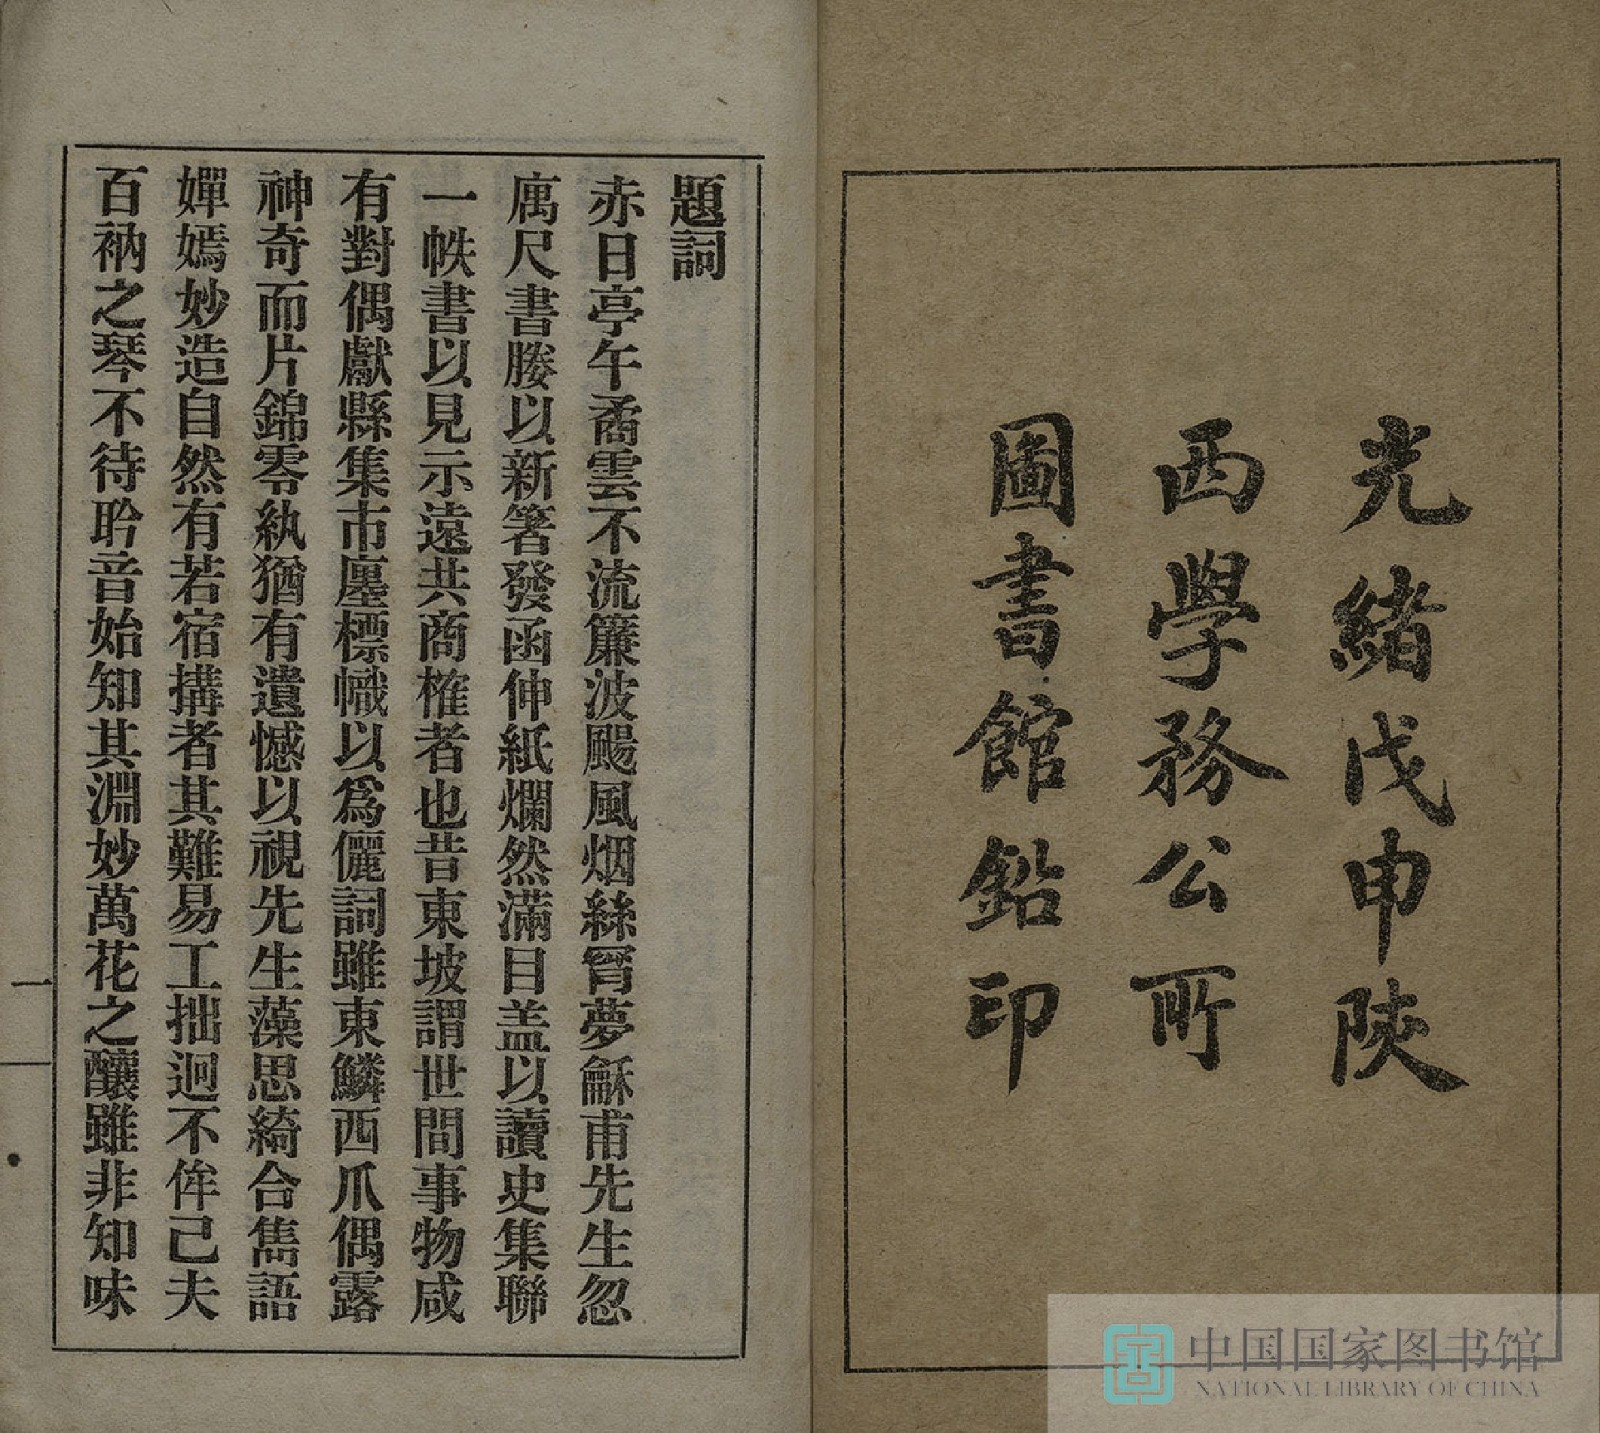 光緒戊申陝
西學務公所
圖書館鉛印
題詞
赤日亭午矞雲不流簾波颺風烟絲罥夢龢甫先生忽
寓尺書媵以新箸發函伸紙爛然滿目盖以讀史集聯
一帙書以見示遠共商榷者也昔東坡謂世間事物咸
有對偶獻縣集市廛標幟以爲儷詞雖東鱗西爪偶露
神奇而片錦零紈猶有遺憾以視先生藻思綺合雋語
嬋嫣妙造自然有若宿搆者其難易工拙迥不侔己夫
百衲之琴不待聆音始知其淵妙萬花之釀雖非知味
一
中国国家图书馆
NATIONAL LIBRARY OF CHINA